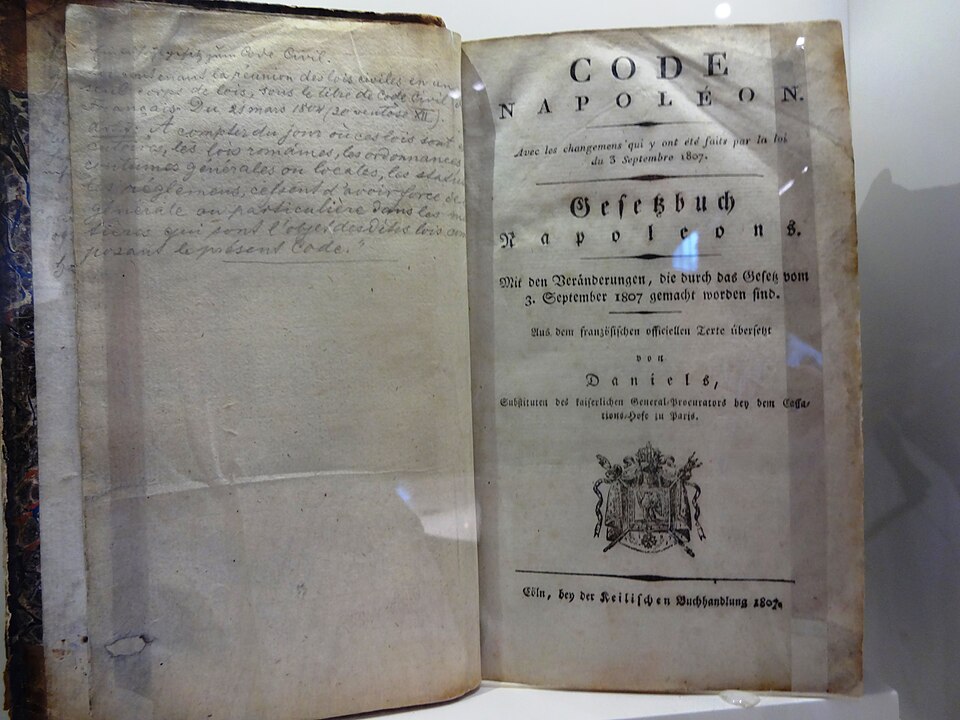 gesetz zum Code Civil.
contenant la réunion des lois civiles en un
seul corps de lois, sous le titre de Code Civil
français. Du 21 mars 1804 (30 ventose XII).
A compter du jour où ces lois sont
les lois romaines, les ordonnances
coutumes générales ou locales, les
les règlemens, cessent d'avoir force de
générale ou particulière dans les
qui sont l'objet desdites lois
posant le présent Code."
CODE
NAPOLÉON.
Avec les changemens qui y ont été faits par la loi
du 3 Septembre 1807.
Gesetzbuch
Napoleons.
Mit den Veränderungen, die durch das Gesetz vom
3. September 1807 gemacht worden sind.
Aus dem französischen officiellen Texte übersetzt
von
Daniels,
Substituten des kaiserlichen General-Procurators bey dem Cassa-
tions-Hofe zu Paris.
Cöln, bey der Keilischen Buchhandlung 1807.